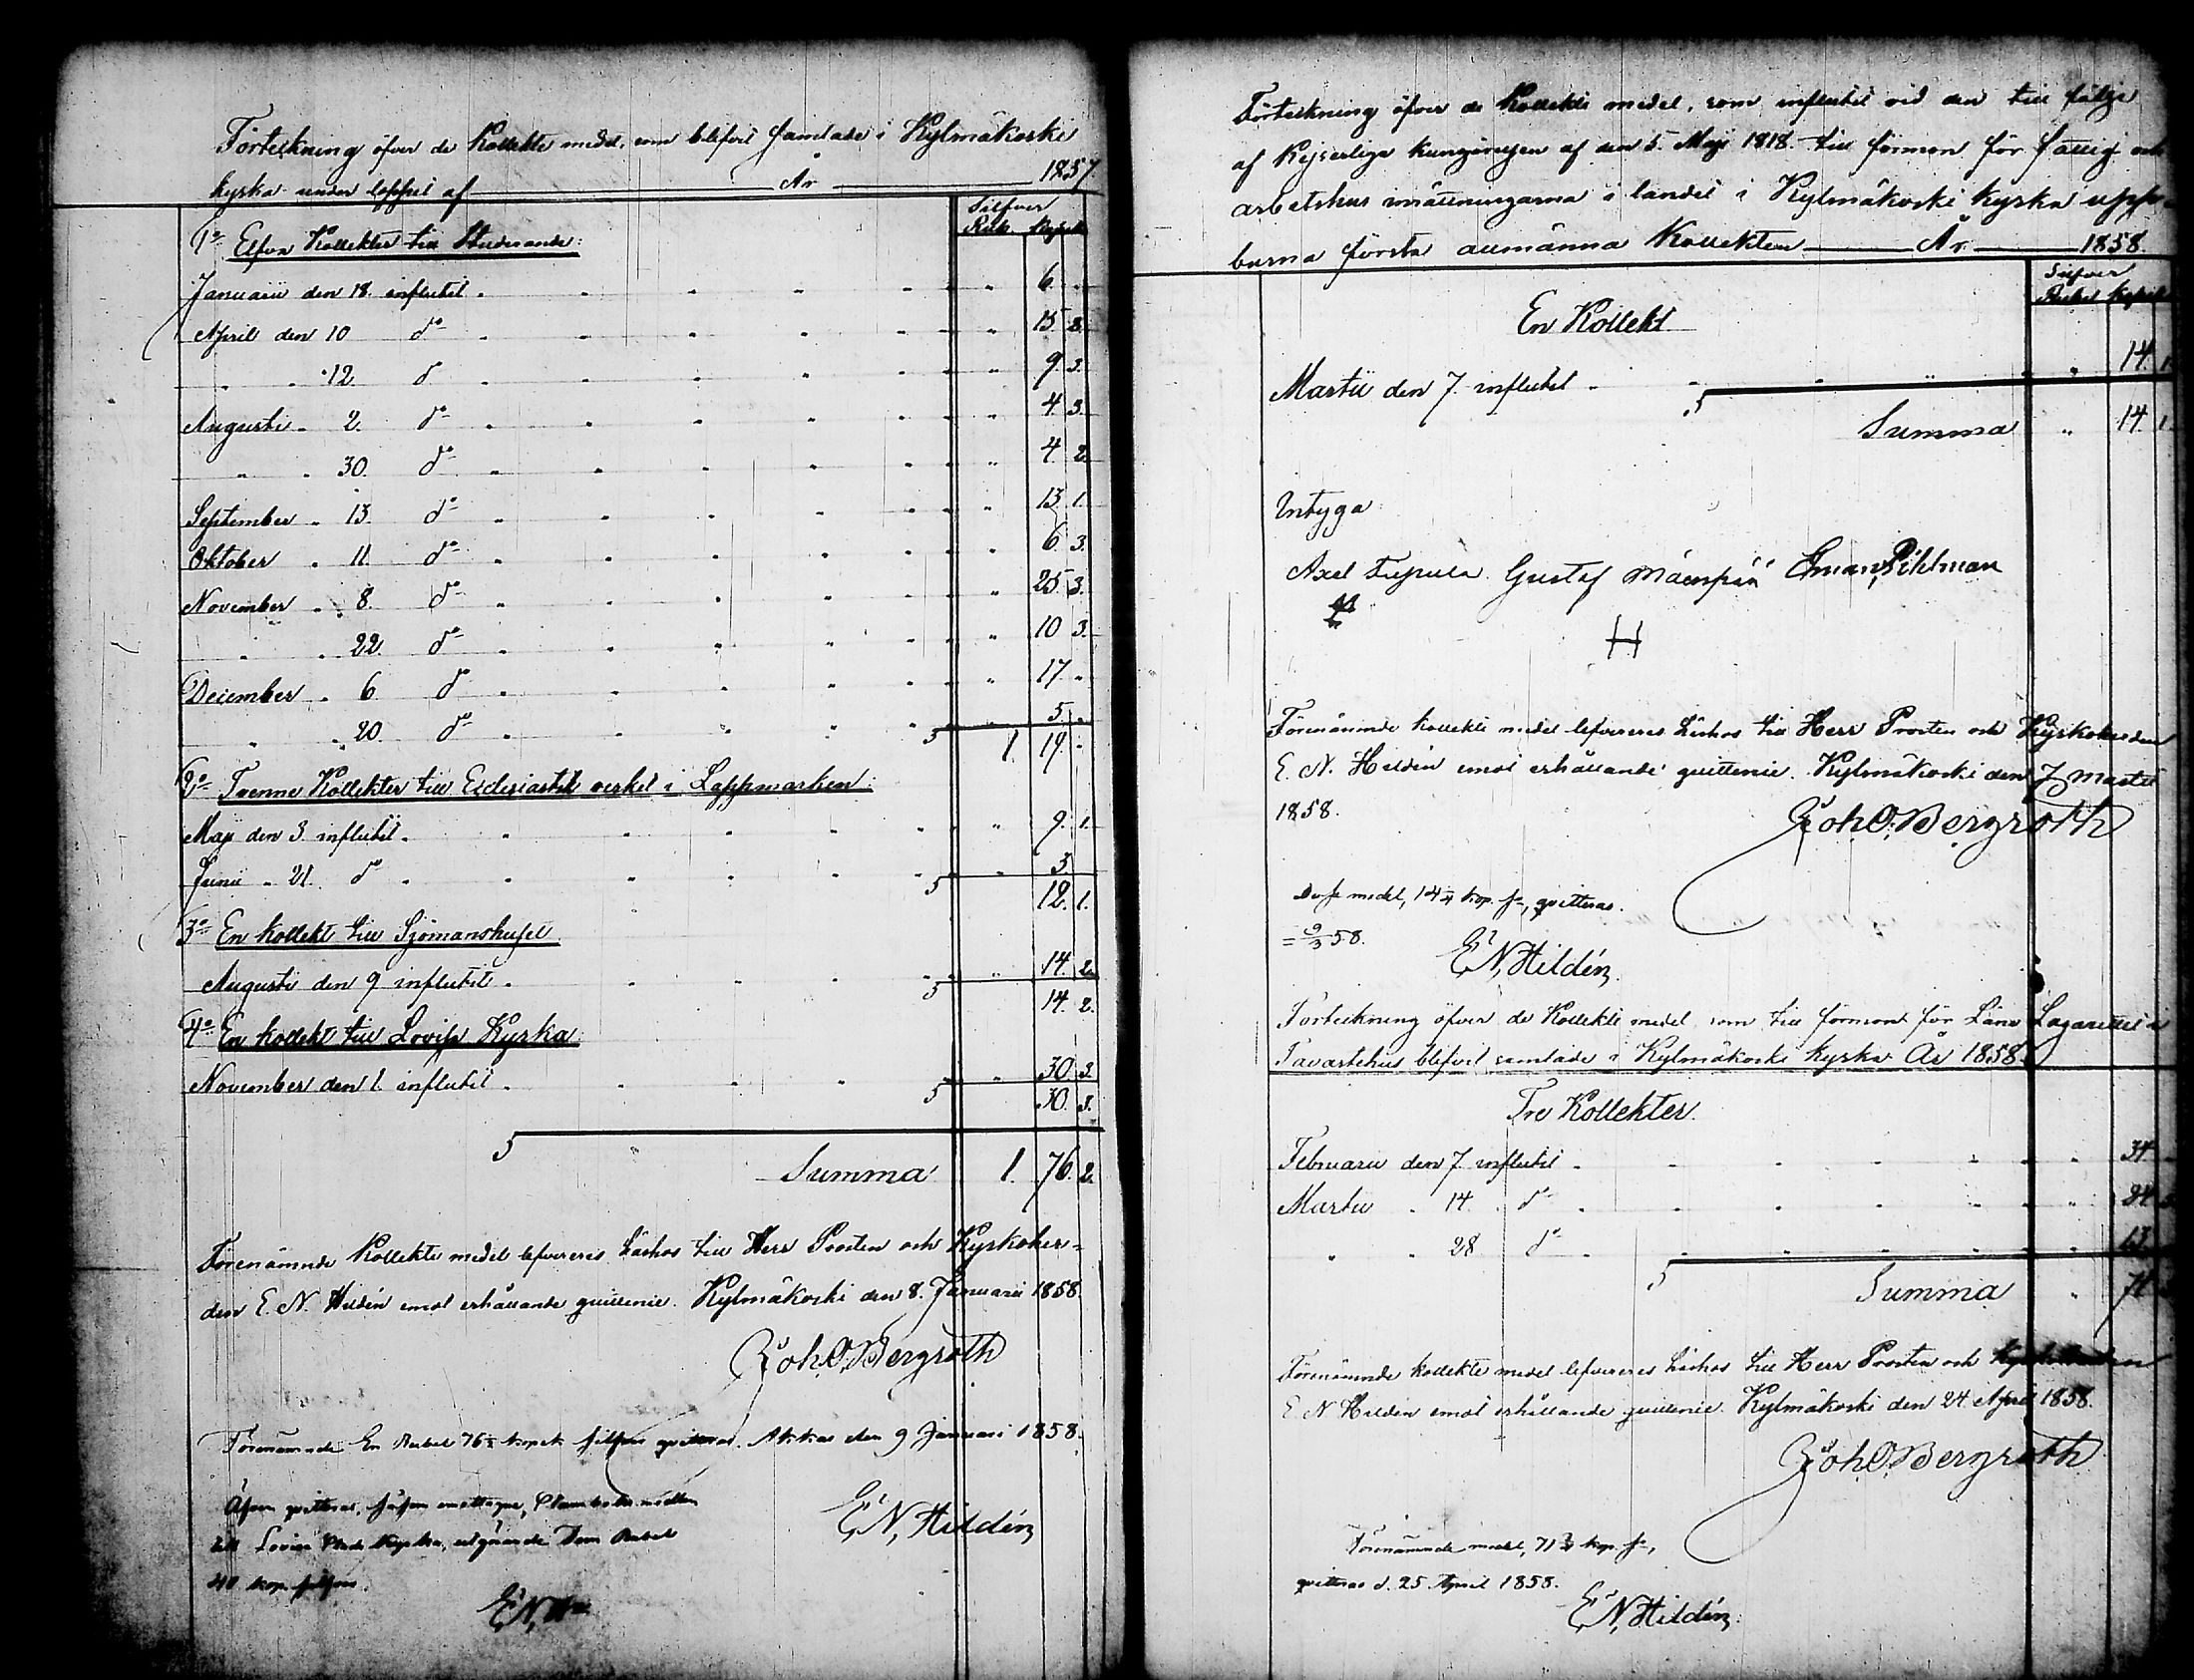 Förteckning öfver de Kollekte medel, som blifvit samlade i Kylmäkoski
kyrka under loppet af År 1857.
Silfver
Rub. Kopek
1o Elfva Kollekter till Studerande:
Januarii den 18. influtit 6.
April den 10 do 15 3.
" " 12 do 9. 3.
Augusti " 2. do 4 3.
" " 30. do 4. 2.
September " 13. do 13. 1.
Oktober " 11. do 6. 3.
November " 8. do 25 3.
" " 22. do 10 3.
December " 6. do 17 "
" " 20. do 5.
1. 19. "
2o Tvenne Kollekter till Ecclesiastik verket i Lappmarken:
Maji den 3. influtit 9. 1.
Junii " 21. do 3.
12. 1.
3o En kollekt till Sjömanshuset
Augusti den 9 influtit 14. 2.
14. 2.
4o En kollekt till Lovisa Kyrka:
November den 1. influtit 30. 3.
30. 3.
Summa 1. 76. 2.
Förenämnde Kollekte medel lefvereres härhos till Herr Prosten och Kyrkoher-
den E. N. Hildén emot erhållande quittence. Kylmäkoski den 8. Januarii 1858.
Joh. O. Bergroth
Förenämnde En Rubel 76½ kopek silfver qvitteras. Akkas den 9 Januari 1858.
Äfven qvitteras,
till Lovisa Stads Kyrka, utgörande Rubel
40 kop. silfver.
E. N. Hildén
E. N. Hn
Förteckning öfver de Kollekte medel, som influtit vid den till följe
af Kejserliga kungörelsen af den 5. Maji 1818 till förmon för fattig och
arbetshus inrättningarna i landet i Kylmäkoski kyrka uppe-
burna första allmänna Kollekten År 1858.
Silfver
Rubel Kopek
En Kollekt
Martii den 7. influtit " 14. 1.
Summa " 14. 1.
Intyga
Axel Gustaf Pihlman
H
Förenämnde kollekte medel lefvereres härhos till Herr Prosten och Kyrkoherden
E. N. Hildén emot erhållande quittence. Kylmäkoski den 7. Martii
1858.
Joh. O. Bergroth
Dessa medel, 14¼ kop. sr, qvitteras.
= 9/3 58.
E. N. Hildén
Förteckning öfver de Kollekte medel som till förmon för Läns Lazarettet i
Tavastehus blifvit samlade i Kylmäkoski kyrka År 1858.
Tre Kollekter.
Februarii den 7. influtit 34.
Martii " 14. do 24
" " 28 do 13.
Summa " 71
Förenämnde kollekte medel lefvereres härhos till Herr Prosten och Kyrkoherden
E. N. Hildén emot erhållande quittence. Kylmäkoski den 24. April 1858.
Joh. O. Bergroth
Förenämnde medel, 71¾ kop. sr,
qvitteras d. 25. April 1858.
E. N. Hildén